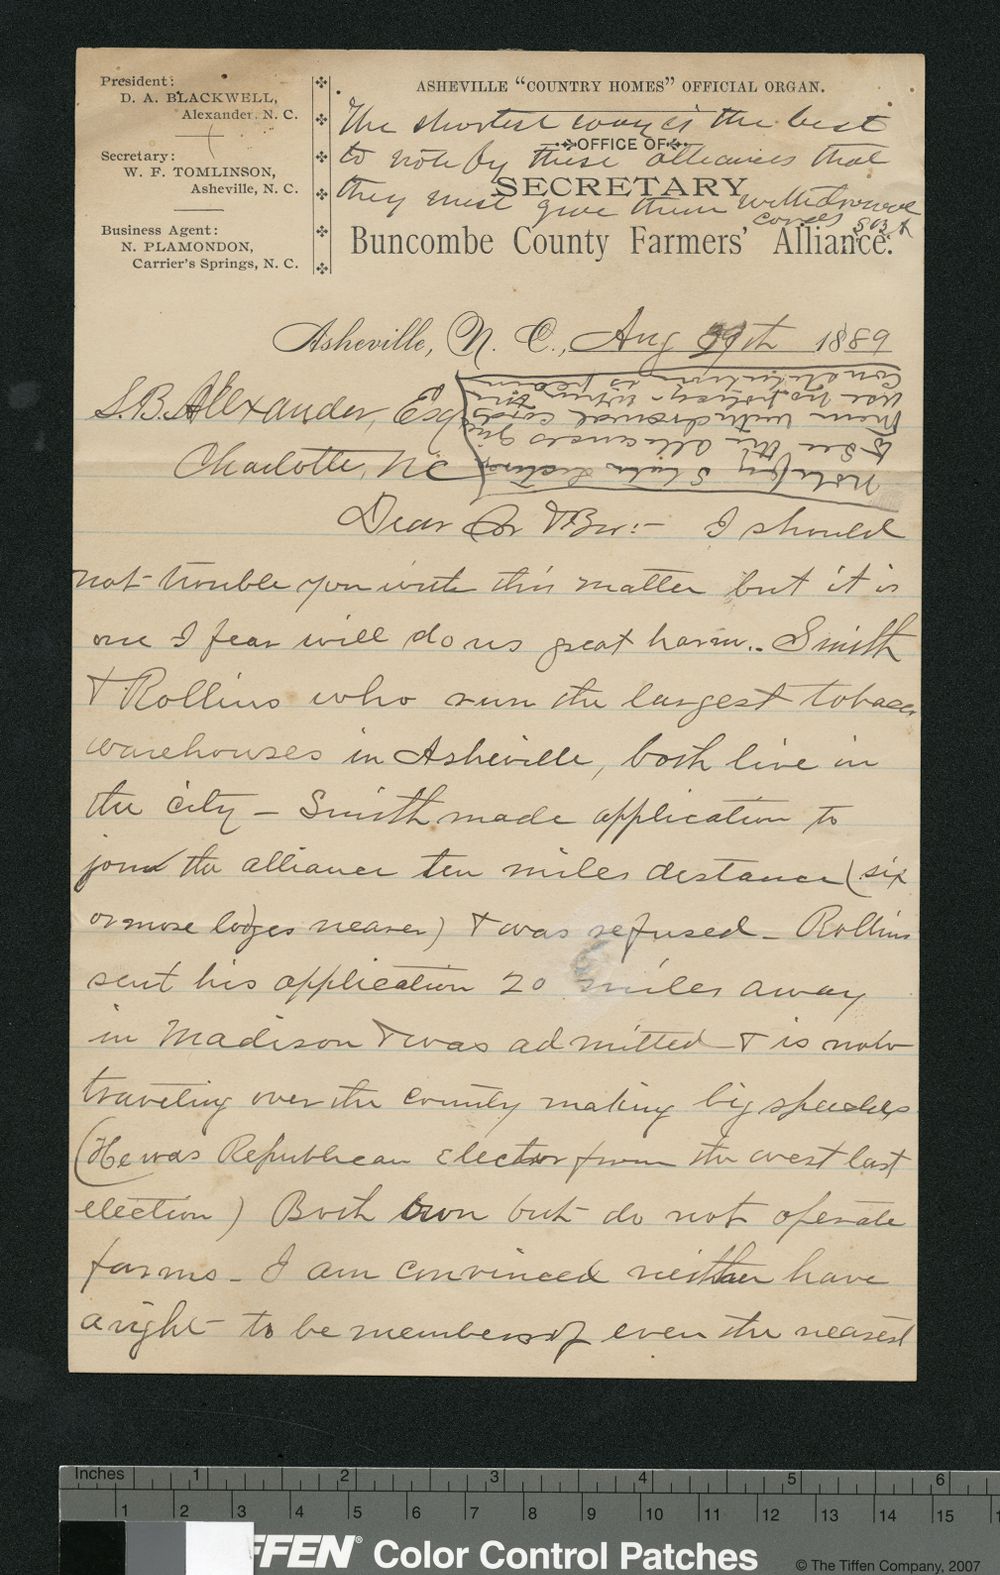 President:
D. A. BLACKWELL,
Alexander, N. C.
Secretary:
W. F. TOMLINSON,
Asheville, N. C.
Business Agent:
N. PLAMONDON,
Carrier's Springs, N. C.
ASHEVILLE "COUNTRY HOMES" OFFICIAL ORGAN.
The shortest way is the best
OFFICE OF
to note by these alliances that
SECRETARY
they must give them withdrawal
cards S B A
Buncombe County Farmers' Alliance.
Asheville, N. C., Aug 29th 1889
S. B. Alexander, Esq
Charlotte, N C
Notify State Lecturer
to see the aliances give
them withdrawal cards
use no policy - when the
Constitution is plain
Dear Sir & Bro:- I should
not trouble you with this matter but it is
one I fear will do us great harm.. Smith
& Rollins who run the largest tobacco
warehouses in Asheville, both live in
the city - Smith made application to
join the alliance ten miles distance (six
or more lodges nearer) & was refused - Rollins
sent his application 20 miles away
in Madison & was admitted & is now
traveling over the county making big speeches
(He was Republican elector from the west last
election) Both own but do not operate
farms - I am convinced neither have
a right to be members of even the nearest
Inches 1 2 3 4 5 6
1 2 3 4 5 6 7 8 9 10 11 12 13 14 15
FFEN® Color Control Patches
© The Tiffen Company, 2007